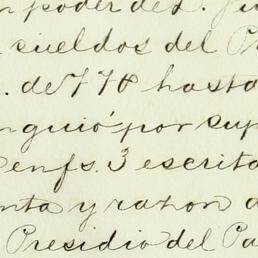 poder de D.
sueldos del
de 778 hasta
nguió por sup
enfs. 3 escrita
nta y razon d
Presidio del Pa